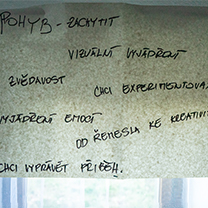 POHYB - ZACHYTIT
VIZUÁLNÍ VYJÁDŘENÍ
ZVĚDAVOST
CHCI EXPERIMENTOVA
VYJÁDŘENÍ EMOCÍ
OD ŘEMESLA KE KREATIVI
CHCI VYPRÁVĚT PŘÍBĚH.